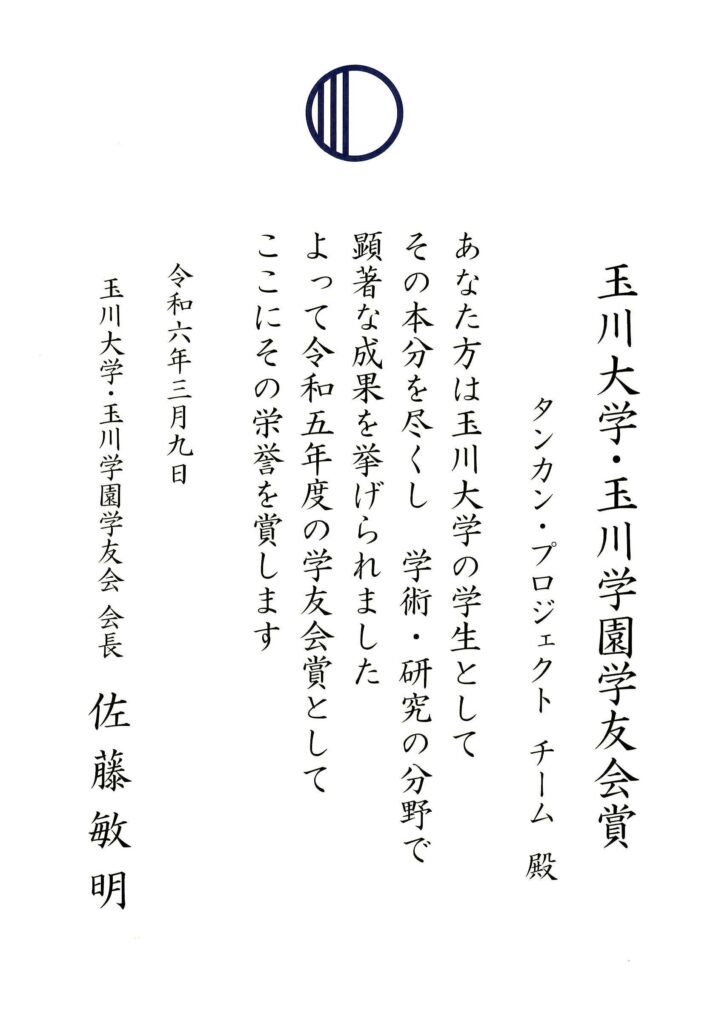 玉川大学・玉川学園学友会賞
タンカン・プロジェクト チーム 殿
あなた方は玉川大学の学生として
その本分を尽くし 学術・研究の分野で
顕著な成果を挙げられました
よって令和五年度の学友会賞として
ここにその栄誉を賞します
令和六年三月九日
玉川大学・玉川学園学友会 会長 佐藤敏明